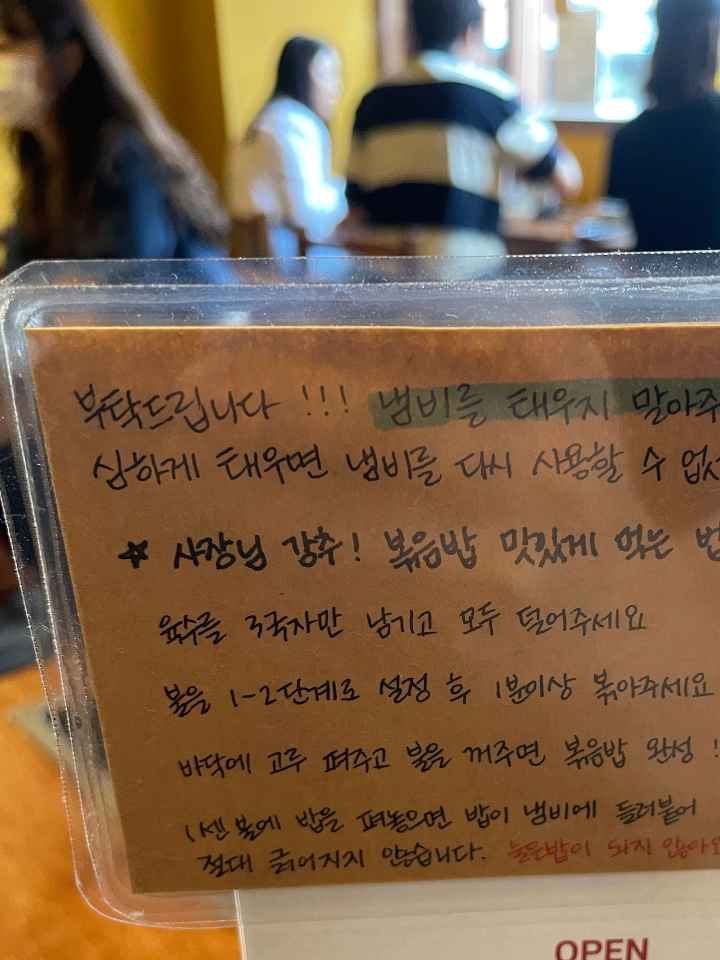 부탁드립니다 !!! 냄비를 태우지 말아주
심하게 태우면 냄비를 다시 사용할 수 없
★ 사장님 강추! 볶음밥 맛있게 먹는 법
육수를 3국자만 남기고 모두 덜어주세요
불을 1-2단계로 설정 후 1분이상 볶아주세요
바닥에 고루 펴주고 불을 꺼주면 볶음밥 완성 !
센 불에 밥을 펴놓으면 밥이 냄비에 들러붙어
절대 긁어지지 않습니다. 눌은밥이 되지 않아요
OPEN